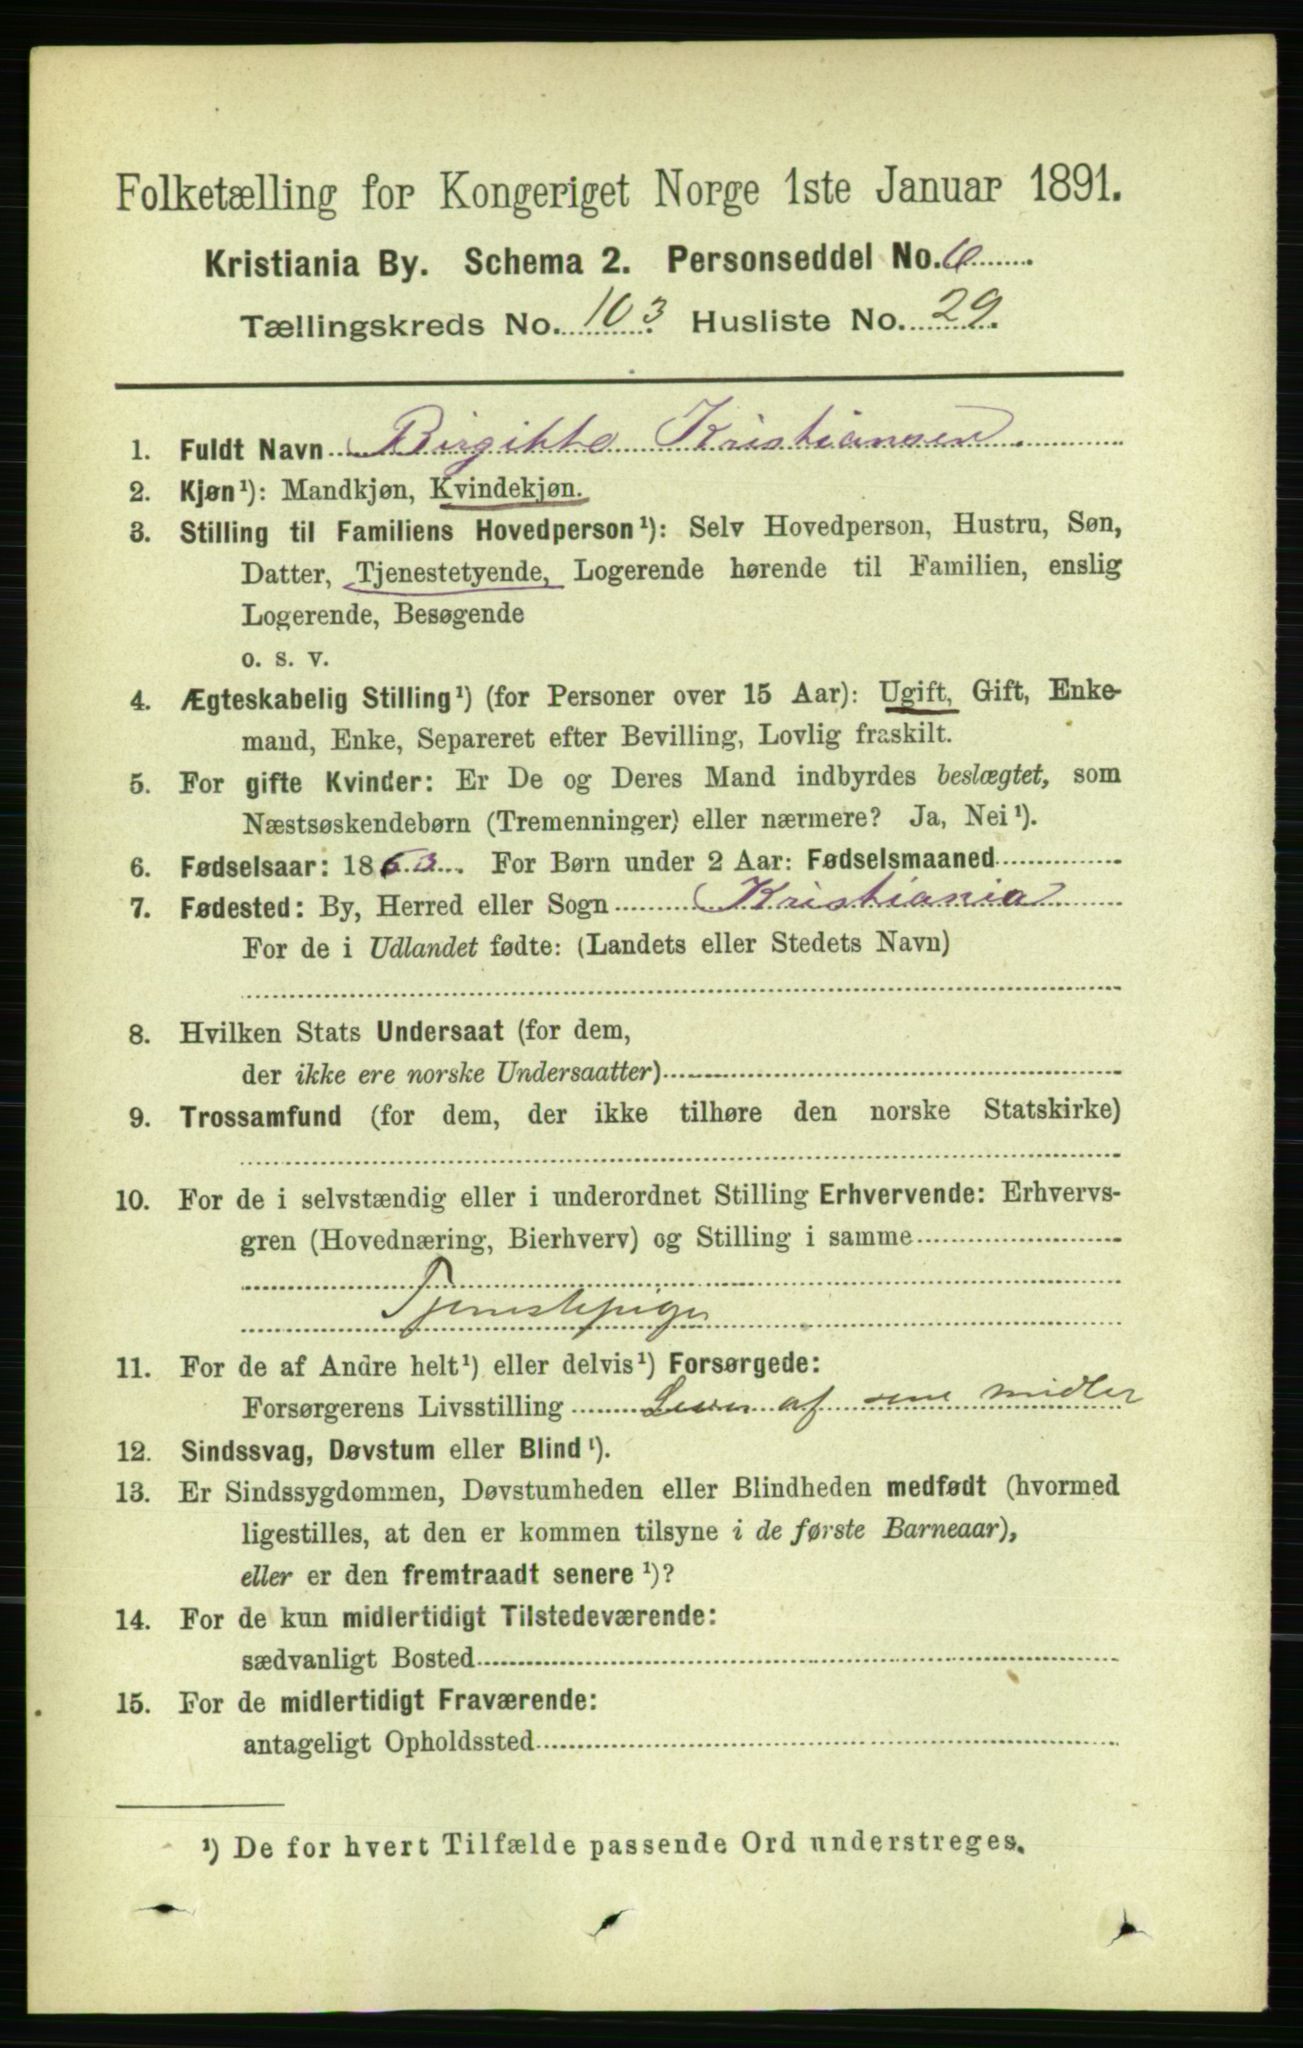 Folketælling for Kongeriget Norge 1ste Januar 1891.
Kristiania By. Schema 2. Personseddel No. 6
Tællingskreds No. 103 Husliste No. 29.
1. Fuldt Navn Birgitte Kristiansen
2. Kjøn¹): Mandkjøn, Kvindekjøn.
3. Stilling til Familiens Hovedperson¹): Selv Hovedperson, Hustru, Søn,
Datter, Tjenestetyende, Logerende hørende til Familien, enslig
Logerende, Besøgende
o. s. v.
4. Ægteskabelig Stilling¹) (for Personer over 15 Aar): Ugift, Gift, Enke-
mand, Enke, Separeret efter Bevilling, Lovlig fraskilt.
5. For gifte Kvinder: Er De og Deres Mand indbyrdes beslægtet, som
Næstsøskendebørn (Tremenninger) eller nærmere? Ja, Nei¹).
6. Fødselsaar: 1863. For Børn under 2 Aar: Fødselsmaaned
7. Fødested: By, Herred eller Sogn Kristiania
For de i Udlandet fødte: (Landets eller Stedets Navn)
8. Hvilken Stats Undersaat (for dem,
der ikke ere norske Undersaatter)
9. Trossamfund (for dem, der ikke tilhøre den norske Statskirke)
10. For de i selvstændig eller i underordnet Stilling Erhvervende: Erhvervs-
gren (Hovednæring, Bierhverv) og Stilling i samme
Tjenestepige
11. For de af Andre helt¹) eller delvis¹) Forsørgede:
Forsørgerens Livsstilling Lever af sine midler
12. Sindssvag, Døvstum eller Blind¹).
13. Er Sindssygdommen, Døvstumheden eller Blindheden medfødt (hvormed
ligestilles, at den er kommen tilsyne i de første Barneaar),
eller er den fremtraadt senere¹)?
14. For de kun midlertidigt Tilstedeværende:
sædvanligt Bosted
15. For de midlertidigt Fraværende:
antageligt Opholdssted
¹) De for hvert Tilfælde passende Ord understreges.